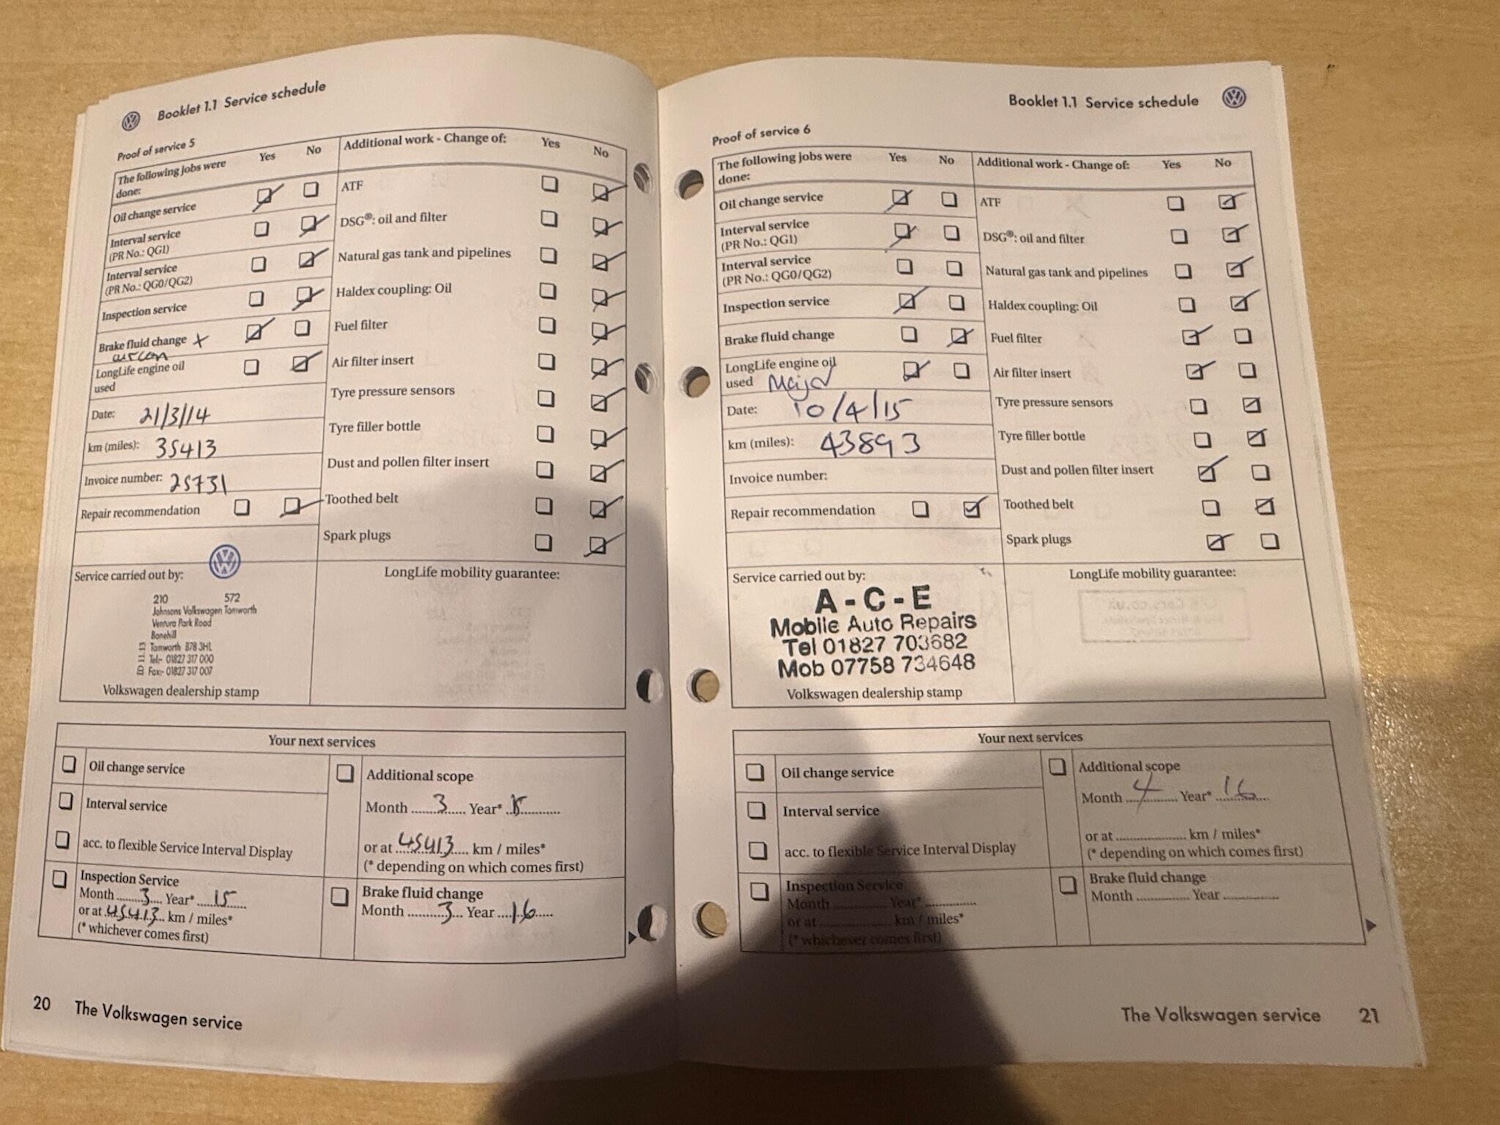 Booklet 1.1 Service schedule
Proof of service 5
The following jobs were done: Yes No
Oil change service
Interval service
(PR No.: QG1)
Interval service
(PR No.: QG0/QG2)
Inspection service
Brake fluid change
aircon
LongLife engine oil
used
Date: 21/3/14
km (miles): 35413
Invoice number: 25731
Repair recommendation
Additional work - Change of: Yes No
ATF
DSG®: oil and filter
Natural gas tank and pipelines
Haldex coupling: Oil
Fuel filter
Air filter insert
Tyre pressure sensors
Tyre filler bottle
Dust and pollen filter insert
Toothed belt
Spark plugs
Service carried out by:
210 572
Johnsons Volkswagen Tamworth
Ventura Park Road
Bonehill
Tamworth B78 3HL
Tel:- 01827 317 000
Fax:- 01827 317 007
Volkswagen dealership stamp
LongLife mobility guarantee:
Your next services
Oil change service
Interval service
acc. to flexible Service Interval Display
Inspection Service
Month 3 Year* 15
or at 45413 km / miles*
(* whichever comes first)
Additional scope
Month 3 Year*
or at 45413 km / miles*
(* depending on which comes first)
Brake fluid change
Month 3 Year 16
20 The Volkswagen service
Booklet 1.1 Service schedule
Proof of service 6
The following jobs were done: Yes No
Oil change service
Interval service
(PR No.: QG1)
Interval service
(PR No.: QG0/QG2)
Inspection service
Brake fluid change
LongLife engine oil
used Major
Date: 10/4/15
km (miles): 43893
Invoice number:
Repair recommendation
Additional work - Change of: Yes No
ATF
DSG®: oil and filter
Natural gas tank and pipelines
Haldex coupling: Oil
Fuel filter
Air filter insert
Tyre pressure sensors
Tyre filler bottle
Dust and pollen filter insert
Toothed belt
Spark plugs
Service carried out by:
A - C - E
Mobile Auto Repairs
Tel 01827 703682
Mob 07758 734648
Volkswagen dealership stamp
LongLife mobility guarantee:
Your next services
Oil change service
Interval service
acc. to flexible Service Interval Display
Inspection Service
Month Year*
or at km / miles*
(* whichever comes first)
Additional scope
Month 4 Year* 16
or at km / miles*
(* depending on which comes first)
Brake fluid change
Month Year
The Volkswagen service 21